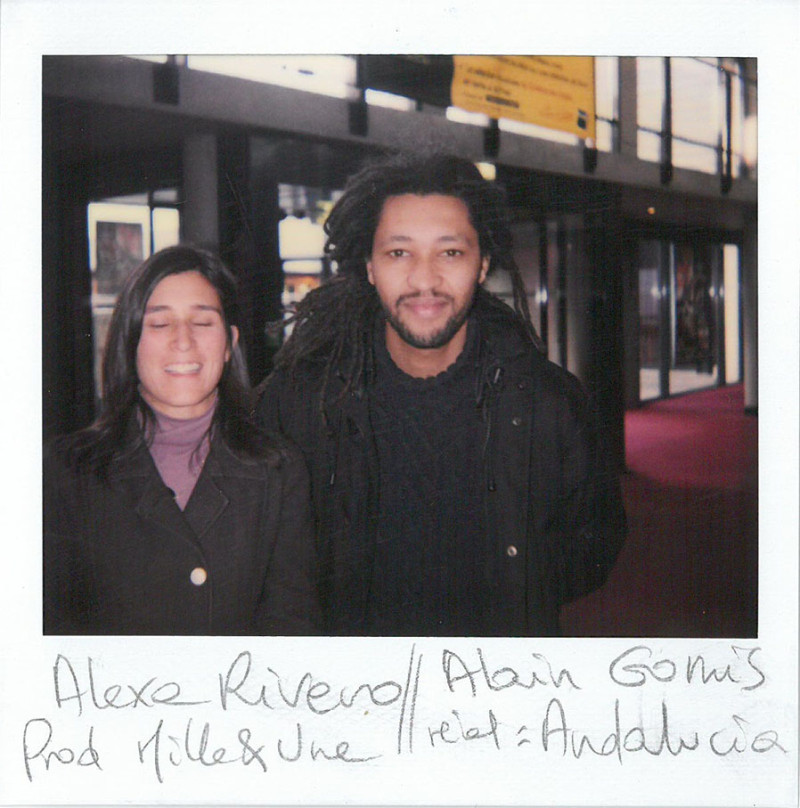 Alexa Rivero // Alain Gomis
Prod Mille & Une // réal : Andalucia